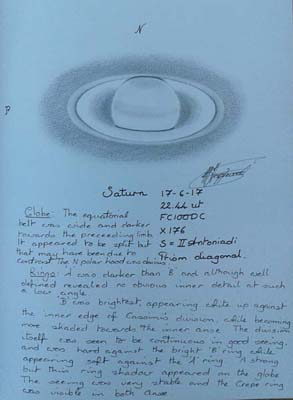 N
P
Saturn 17-6-17
22.44 ut
Globe: The equatorial FC100DC
belt was wide and darker X176
towards the preceeding limb S = II Antoniadi
It appeared to be split but Prism diagonal.
that may have been due to
contrast. The N polar hood was obvious
Rings: A was darker than B and although well
defined revealed no obvious inner detail at such
a low angle.
'B' was brightest, appearing white up against
the inner edge of Cassini's division, while becoming
more shaded towards the inner ansae. The division
itself was seen to be continuous in good seeing,
and was hard against the bright 'B' ring while
appearing soft against the 'A' ring. A strong
but thin ring shadow appeared on the globe
The seeing was very stable and the Crepe ring
was visible in both ansae